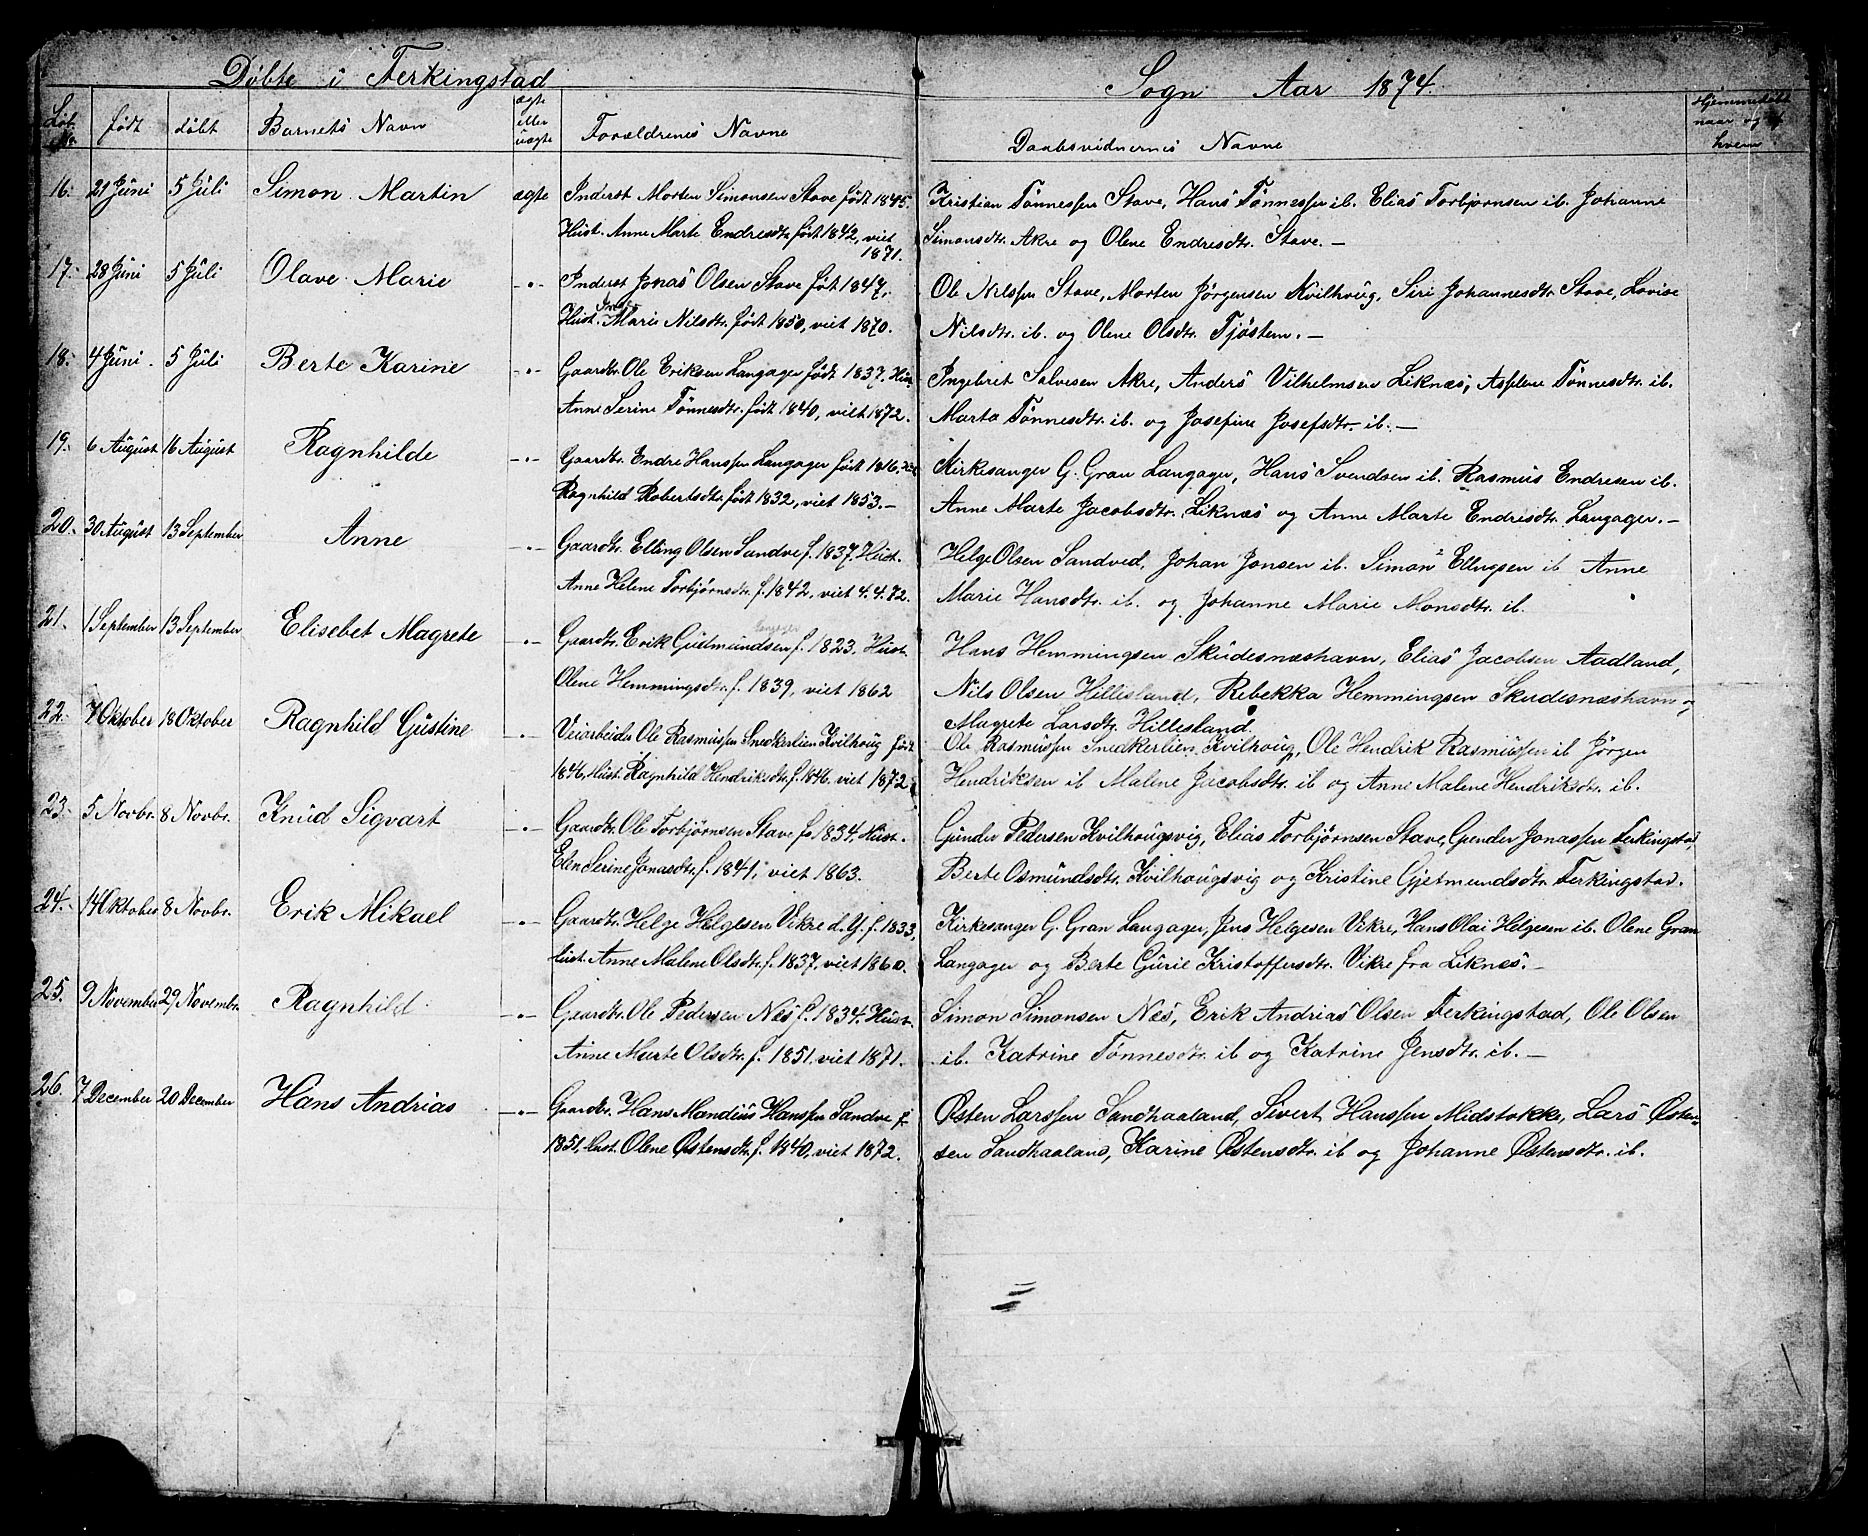 Döbte i Ferkingstad Sogn Aar 1874.
Löb. No. födt döbt Barnets Navn ægte eller uægte Forældrenes Navne Daabsvidnernes Navne Hjemmedöbt naar og af hvem
16. 21 Juni 5 Juli Simon Martin ægte Inderst Morten Simonsen Stave födt 1845. Kristian Tönnessen Stave, Hans Tönnessen ib. Elias Torbjörnsen ib. Johanne
Hust. Anne Marte Endresdtr. födt 1842, viet 1871. Simonsdtr. Akre og Olene Endresdtr. Stave. —
17. 28 Juni 5 Juli Olave Marie -„- Inderst Jonas Olsen Stave föt 1847, Ole Nilssen Stave, Morten Jörgensen Kvilhoug, Siri Johannesdtr. Stave, Lovise
Hust. Marie Nilsdtr. födt 1850, viet 1870. Nilsdtr. ib. og Olene Olsdtr. Tjöstem. —
18. 4 Juni 5 Juli Berte Karine -„- Gaardbr. Ole Eriksen Langager födt 1837. Hust. Ingebret Salvesen Akre, Anders Vilhelmsen Liknæs, Asplene Tönnesdtr. ib.
Anne Serine Tönnesdtr. födt 1840, viet 1872. Marta Tönnesdtr. ib. og Josefine Josefsdtr. ib. —
19. 6 August 16 August Ragnhilde -„- Gaardbr. Endre Hanssen Langager födt 1816. Hust. Kirkesanger G. Gran Langager, Hans Svendsen ib. Rasmus Endresen ib.
Ragnhild Robertsdtr. födt 1832, viet 1853. — Anne Marte Jacobsdtr. Liknæs og Anne Marte Endresdtr. Langager. —
20. 30 August 13 September Anne -„- Gaardbr. Elling Olsen Sandve f. 1837. Hust. Helge Olsen Sandved, Johan Jonsen ib. Simon Ellingsen ib Anne
Anne Helene Torbjörnsdtr. f. 1842, viet 4.4.72. Marie Hansdtr. ib. og Johanne Marie Monsdtr. ib.
21. 1 September 13 September Elisebet Magrete -„- Gaardbr. Erik Gutmundsen f. 1823. Hust. Hans Hemmingsen Skudesnæshavn, Elias Jacobsen Aadland,
Olene Hemmingsdtr. f. 1839, viet 1862 Nils Olsen Hillesland, Rebekka Hemmingsen Skudesnæshavn og
Magrete Larsdtr. Hillesland.
22. 7 Oktober 18 Oktober Ragnhild Gustine -„- Veiarbeider Ole Rasmussen Snedkerlien Kvilhoug födt Ole Rasmussen Snedkerlien Kvilhoug, Ole Hendrik Rasmussen ib Jörgen
1846, Hust. Ragnhild Hendriksdtr. f. 1846. viet 1872 Hendriksen ib Malene Jacobsdtr. ib og Anne Malene Hendriksdtr. ib.
23. 5 Novbr. 8 Novbr. Knud Sigvart -„- Gaardbr. Ole Torbjörnsen Stave f. 1834. Hust. Gunder Pedersen Kvilhougsvig, Elias Torbjörnsen Stave, Gunder Jonassen Ferkingstad,
Elen Serine Jonasdtr. f. 1841, viet 1863. Berte Osmundsdtr. Kvilhougsvig og Kristine Gjetmundsdtr. Ferkingstad.
24. 14 Oktober 8 Novbr. Erik Mikael -„- Gaardbr. Helge Helgesen Vikre d.Y. f. 1833, Kirkesanger G. Gran Langager, Jens Helgesen Vikre, Hans Olai Helgesen ib. Olene Gran
Hust. Anne Malene Olsdtr. f. 1837, viet 1860. Langager og Berte Gurie Kristoffersdtr. Vikre fra Liknæs. —
25. 9 November 29 Novembr. Ragnhild -„- Gaardbr. Ole Pedersen Næs f. 1834. Hust. Simon Simonsen Næs, Erik Andrias Olsen Ferkingstad, Ole Olsen
Anne Marte Olsdtr. f. 1851. viet 1871. ib. Katrine Tönnesdtr. ib og Katrine Jensdtr. ib. —
26. 7 December 20 December Hans Andrias -„- Gaardbr. Hans Mandius Hanssen Sandve f. Østen Larssen Sandhaaland, Sivert Hanssen Midstokke, Lars Østen-
1851, Hust. Olene Østensdtr. f. 1840, viet 1872. sen Sandhaaland, Karine Østensdtr. ib og Johanne Østensdtr. ib.